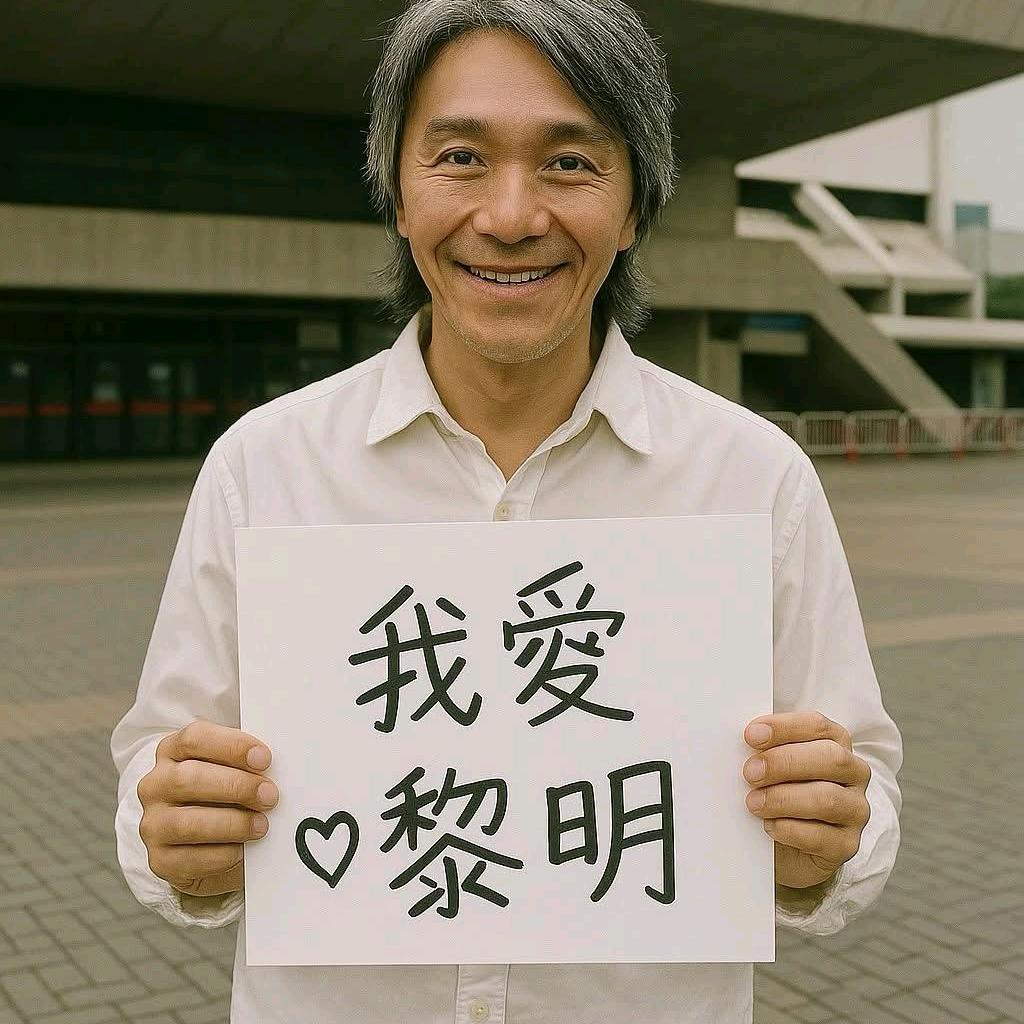 我愛
♡黎明